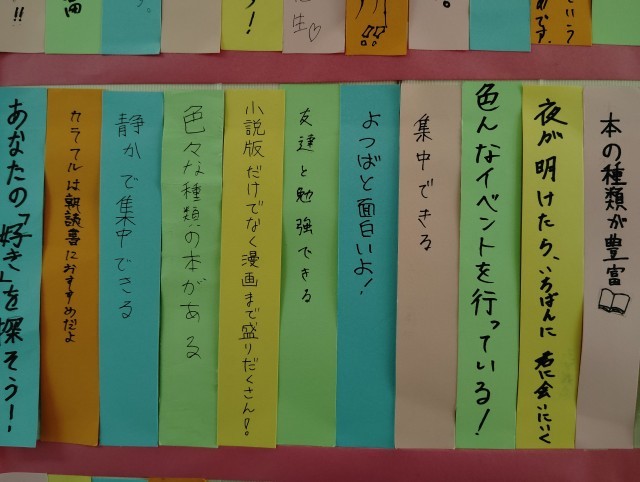 富
!!
。
!
生♡
という
です。
本の種類が豊富
夜が明けたら、いちばんに君に会いにいく
色んなイベントを行っている!
集中できる
よつばと面白いよ!
友達と勉強できる
小説版だけでなく漫画まで盛りだくさん!
色々な種類の本がある
静かで集中できる
カラフルは朝読書におすすめだよ
あなたの「好き」を探そう!